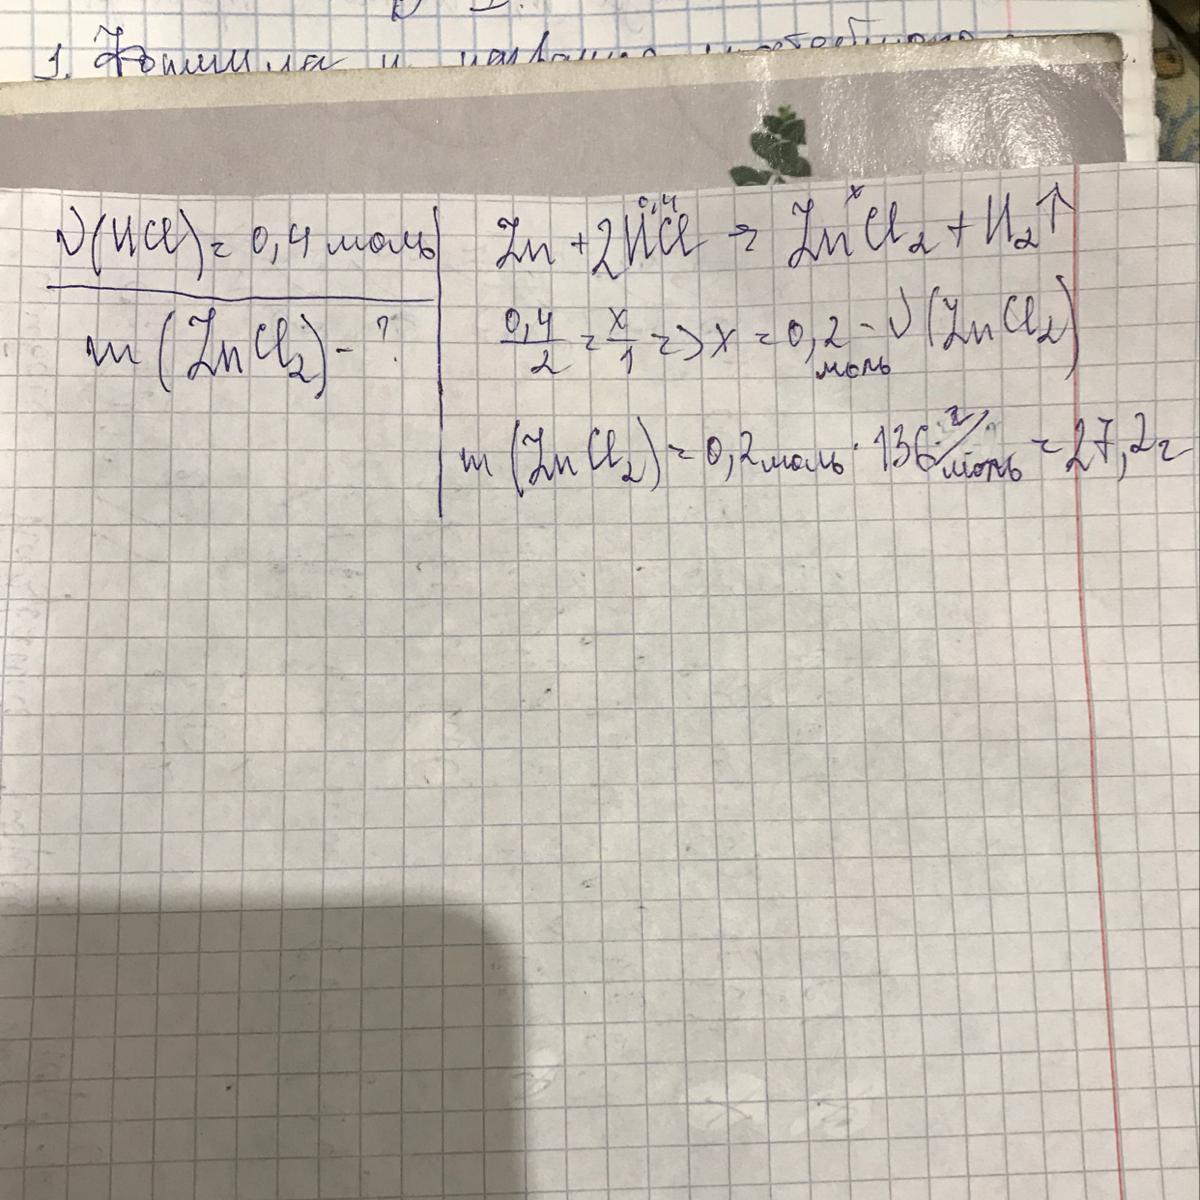 1. Формула и название
ν(HCl) = 0,4 моль
m(ZnCl₂) - ?
0,4 x
Zn + 2HCl → ZnCl₂ + H₂↑
0,4/2 = x/1 => x = 0,2 моль - ν(ZnCl₂)
m(ZnCl₂) = 0,2 моль · 136 г/моль = 27,2 г